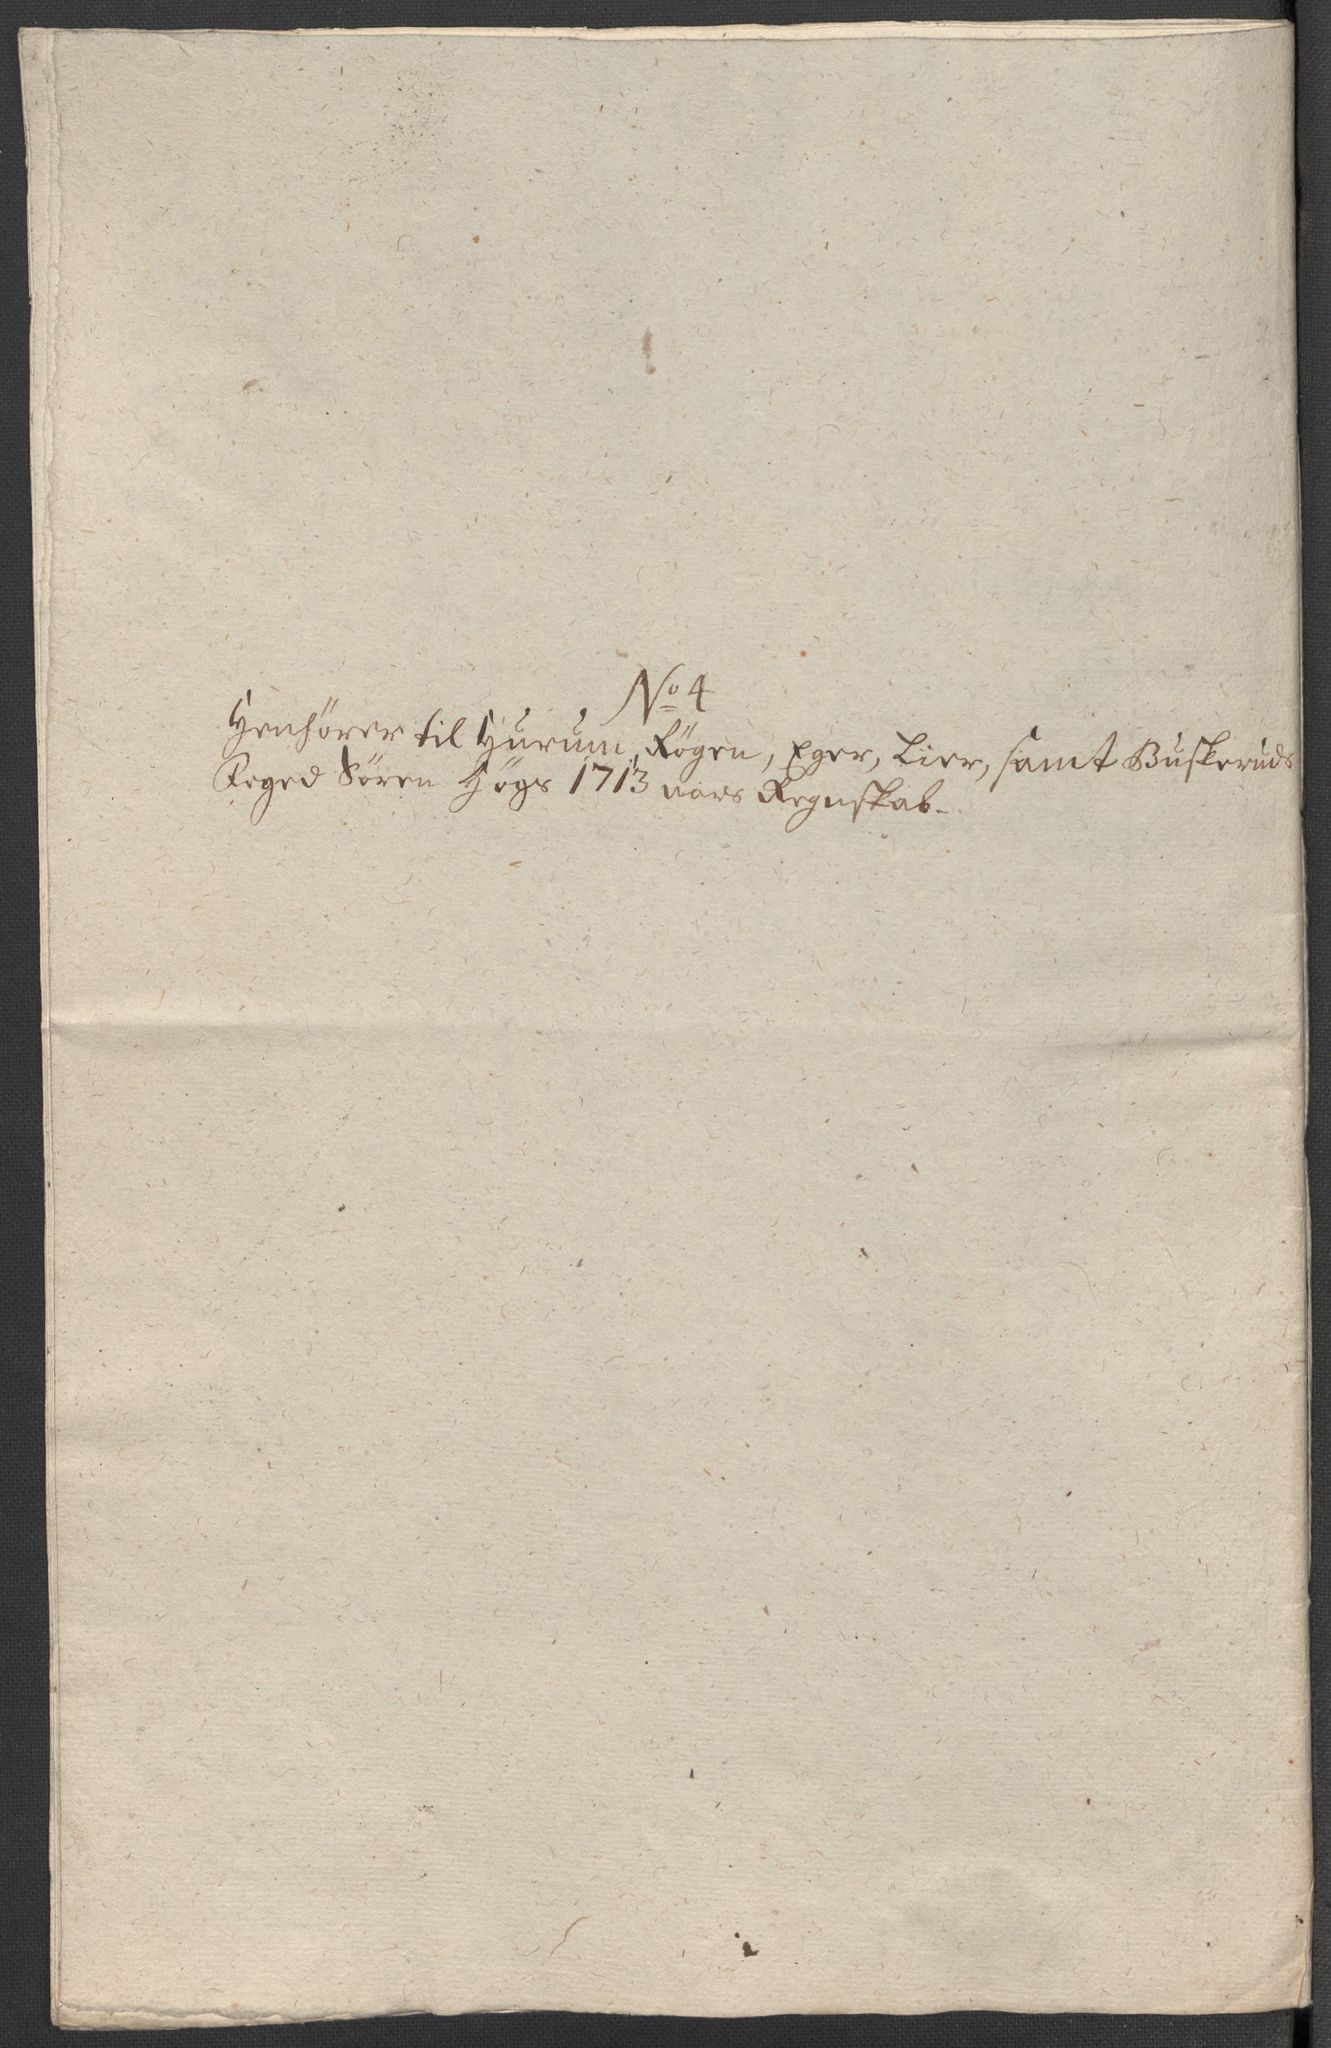 No 4
Henhører til Hurum, Røgen, Eger, Lier, samt Buskeruds
Foged Søren Høgs 1713 aars Regnskab.